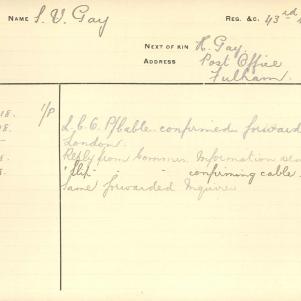 NAME S. V. Gay
REG. &C. 43rd
NEXT OF KIN K. Gay,
ADDRESS Post Office
Fulham.
1/P
L. C. O. cable confirmed forward
London.
Reply from Commr. Information
"Slip" " " confirming cable
Same forwarded Inquirer